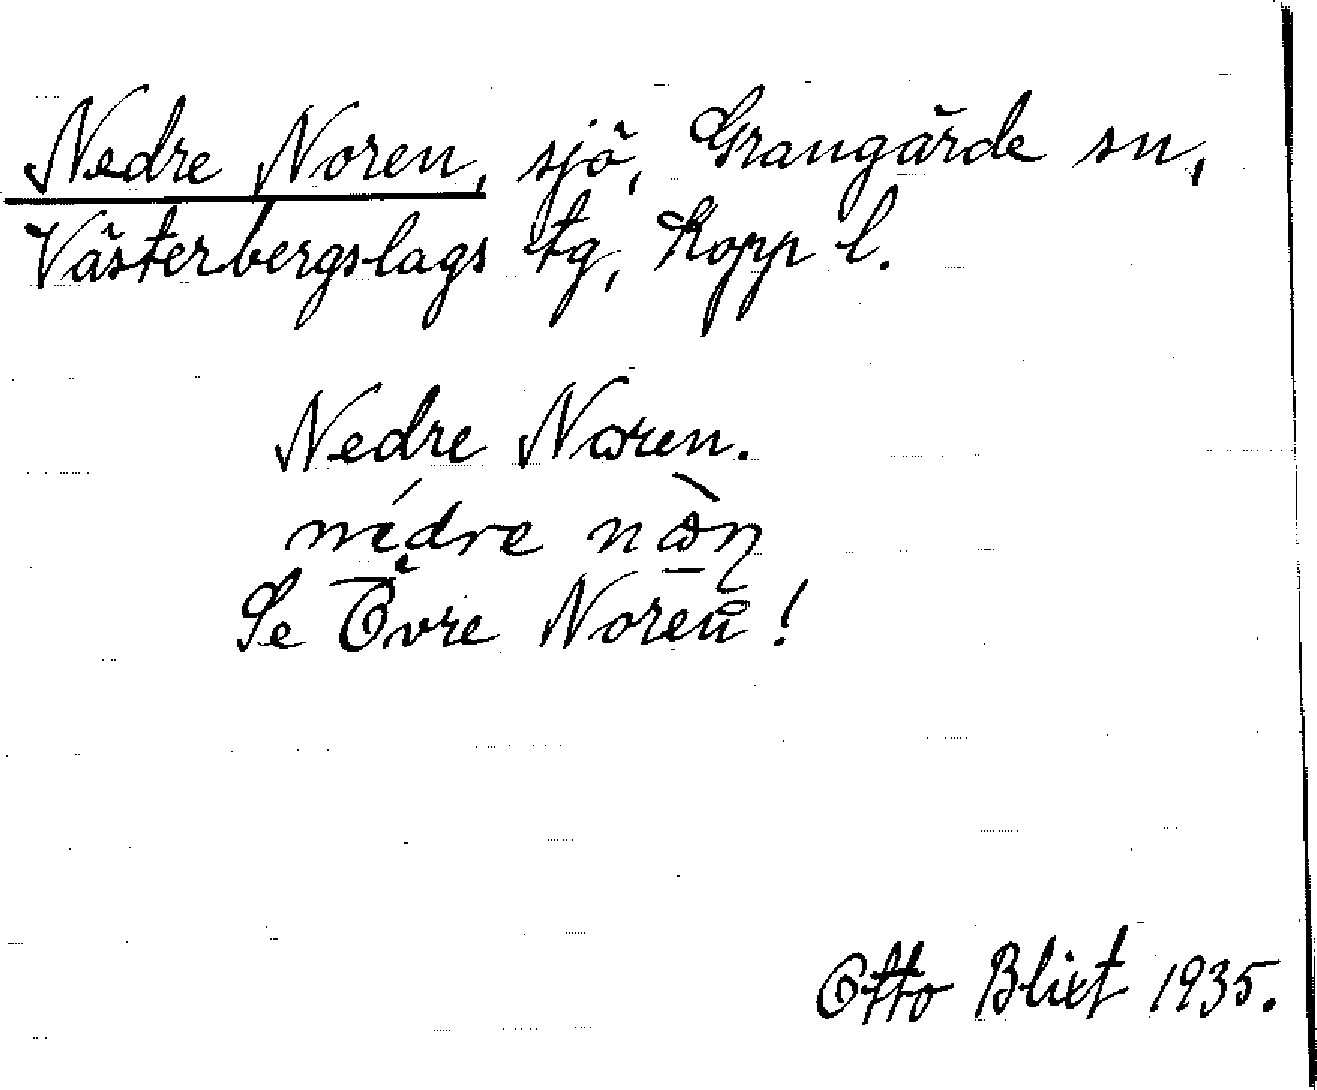 Nedre Noren, sjö, Grangärde sn,
Västerbergslags tg, Kopp l.
Nedre Noren.
nédre
Se Övre Noren!
Otto Blixt 1935.